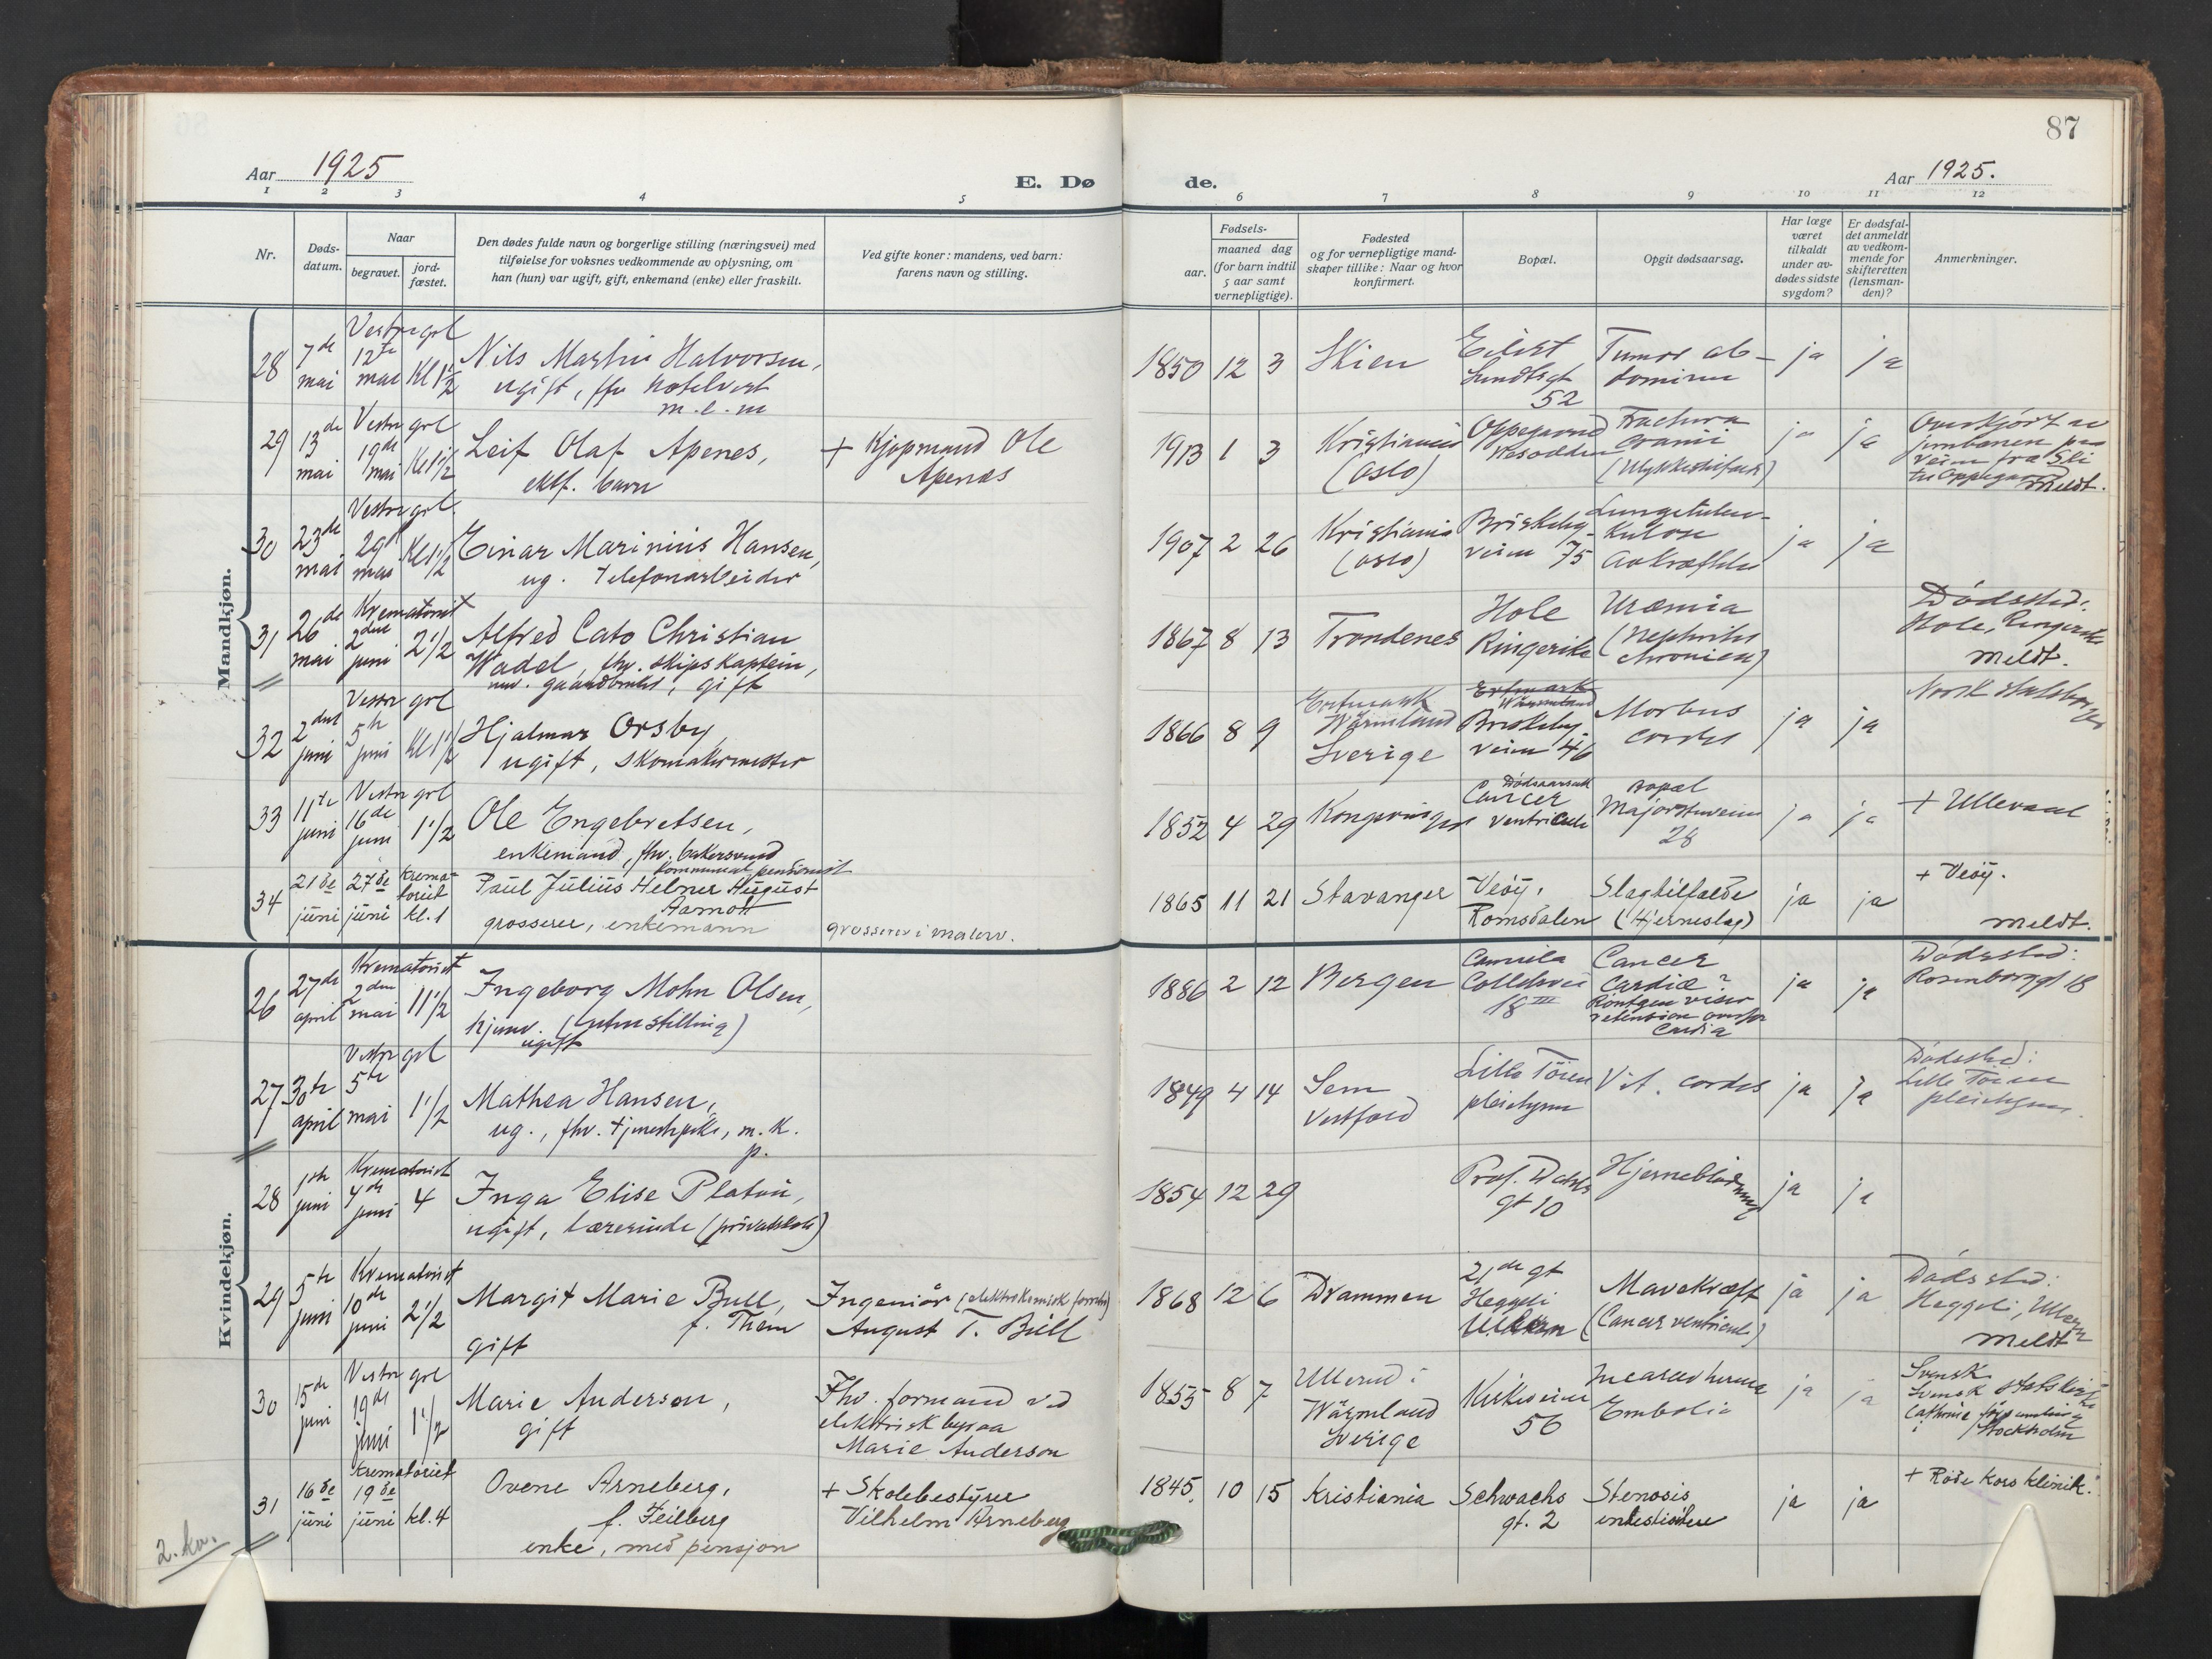 87
Aar 1925
E. Dø
de.
Aar 1925.
1 2 3 4 5 6 7 8 9 10 11 12
Nr.
Døds-
datum.
Naar
begravet.
jord-
fæstet.
Den dødes fulde navn og borgerlige stilling (næringsvei) med
tilføielse for voksnes vedkommende av oplysning, om
han (hun) var ugift, gift, enkemand (enke) eller fraskilt.
Ved gifte koner: mandens, ved barn:
farens navn og stilling.
Fødsels-
aar.
maaned dag
(for barn indtil
5 aar samt
vernepligtige).
Fødested
og for vernepligtige mand-
skaper tillike: Naar og hvor
konfirmert.
Bopæl.
Opgit dødsaarsag.
Har læge
været
tilkaldt
under av-
dødes sidste
sygdom?
Er dødsfal-
det anmeldt
av vedkom-
mende for
skifteretten
(lensman-
den)?
Anmerkninger.
Mandkjøn.
28
7de
mai
Vestre grl
12te
mai
Kl 1 1/2
Nils Martin Halvorsen,
ugift, fhv hotelvert
1850 12 3
Skien
Eilert
Sundtsgt
52
Tumor ab-
dominer
ja
ja
29
13de
mai
Vestre grl
19de
mai
Kl 1 1/2
Leif Olaf Apenes,
ektf. barn
+ Kjøpmand Ole
Apenes
1913 1 3
Kristiania
(Oslo)
Oppegaard
Fractura
cranii
ja
ja
Overkjørt av
jernbanen paa
veien fra Ski
til Oppegaard
Meldt.
30
23de
mai
Vestre grl.
29d
mai
Kl 1 1/2
Einar Marinius Hansen,
ug. telefonarbeider
1907 2 26
Kristiania
(Oslo)
Briskeby-
veien 75
Lungetuber-
kulose
Avkræftelse
ja
ja
31
26de
mai
Krematoriet
2den
juni
2 1/2
Alfred Cato Christian
Wadel, fhv. skipskaptein,
nuv. gaardbruker, gift
1867 8 13
Trondenes
Hole
Ringerike
Uræmia
(Nephritis
chronica)
Dødssted:
Hole, Ringerike
Meldt.
32
2den
juni
Vestre grl
5te
juni
Kl 1 1/2
Hjalmar Orsby,
ugift, skomakermester
1866 8 9
Wärmland
Sverige
Briskeby-
veien 46
Morbus
cordis
ja
ja
Norsk statsborger
33
11te
juni
Vestre grl
16de
juni
1 1/2
Ole Engebretsen,
enkemand, fhv. bakersvend
Kommunal pensionist
1852 4 29
Kongsvinger
Dødsaarsak
Cancer
ventriculi
Bopæl
Majorstuveien
28
ja
ja
+ Ullevaal
34
21de
juni
27de
juni
Krema-
toriet
kl. 1
Paul Julius Helmer August
Aamodt
grosserer, enkemann
grosserer i malerv.
1865 11 21
Stavanger
Veøy,
Romsdalen
Slagtilfælde
(Hjerneslag)
ja
ja
+ Veøy.
Meldt.
Kvindekjøn.
26
27de
april
Krematoriet
2den
mai
11 1/2
Ingeborg Mohn Olsen,
hjemv. (uten stilling)
ugift
1886 2 12
Bergen
Camilla
Collettsvei
18 III
Cancer
Cardiæ?
Röntgen viser
retension ovenfor
Cardia
ja
ja
Dødssted:
Rosenborggt 18
27
30te
april
Vestre grl
5te
mai
1 1/2
Mathea Hansen,
ug., fhv. tjenestepike, m.k.
p.
1849 4 14
Sem
Vestfold
Lille Tøien
pleiehjem
Vit. cordis
ja
ja
Dødssted:
Lille Tøien
pleiehjem.
28
1ste
juni
Krematoriet
4de
juni
4
Inga Elise Platou,
ugift, lærerinde (privatskole)
1854 12 29
Prof. Dahls
gt 10
Hjerneblødning
ja
ja
29
5te
juni
Krematoriet
10de
juni
2 1/2
Margit Marie Bull,
f. Them
gift
Ingeniør (elektrokemisk forretn)
August T. Bull
1868 12 6
Drammen
21de gt
Heggeli
Ullern
Mavekræft
(Cancer ventriculi)
ja
ja
Dødssted:
Heggeli, Ullern
Meldt
30
15de
juni
Vestre grl
19de
juni
1 1/2
Marie Anderson,
gift
Fhv. formand ved
elektrisk byraa
Marie Anderson
1855 8 7
Ullerud i
Wärmland
Sverige
Kirkeveien
56
Embolia
ja
ja
Svensk
Svensk statskirke
Cathrine församling
i Stockholm
31
16de
juni
Krematoriet
19de
juni
kl. 4
Ovene Arneberg,
f. Feilberg
enke, med pensjon
+ Skolebestyrer
Vilhelm Arneberg
1845. 10 15
Kristiania
Schwachs
gt. 2
Stenosis
ja
ja
+ Røde Kors Klinik.
2. kv.